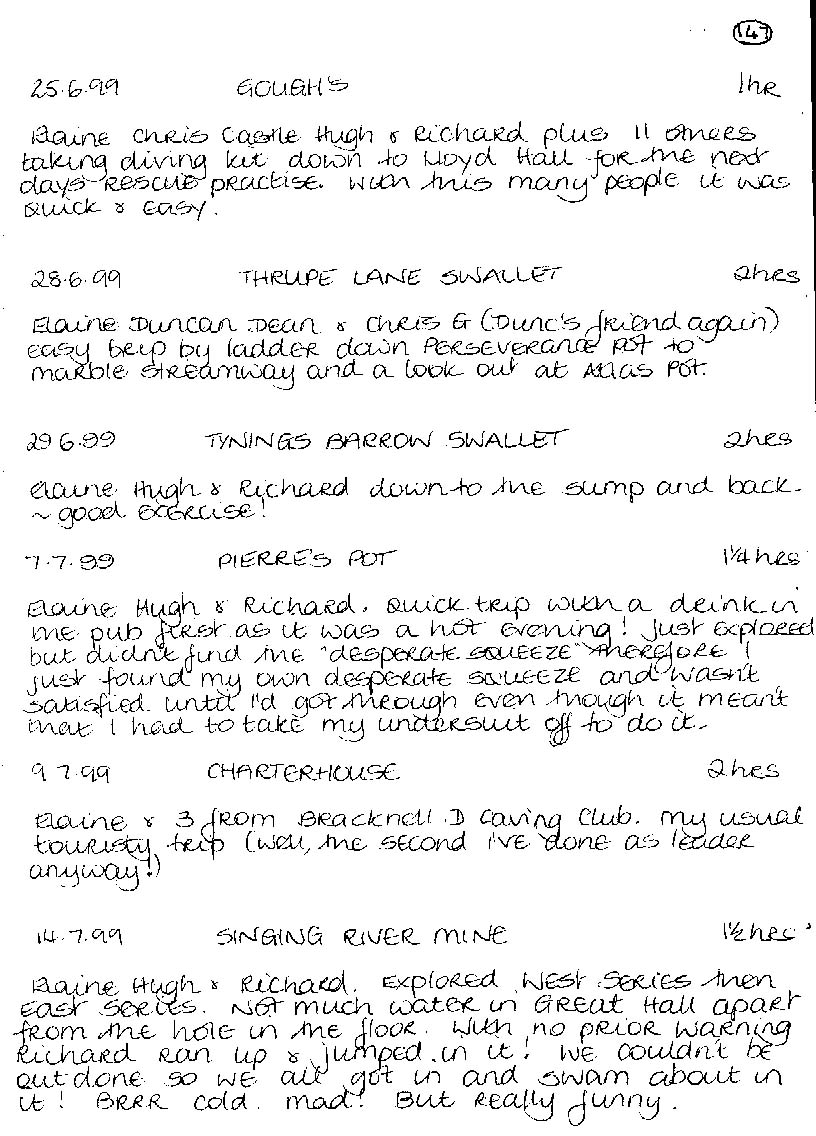 147
25.6.99 GOUGH'S 1hr
Elaine Chris Castle Hugh & Richard plus 11 others
taking diving kit down to Lloyd Hall for the next
days rescue practise. With this many people it was
quick & easy.
28.6.99 THRUPE LANE SWALLET 2hrs
Elaine Duncan Dean & Chris G (Dunc's friend again)
easy trip by ladder down Perseverance Pot to
marble streamway and a look out at Atlas Pot.
29 6.99 TYNINGS BARROW SWALLET 2hrs
Elaine Hugh & Richard down to the sump and back -
~ good exercise!
7.7.99 PIERRE'S POT 1¼ hrs
Elaine Hugh & Richard. Quick trip with a drink in
the pub first as it was a hot evening! Just explored
but didn't find the "desperate squeeze" therefore I
just found my own desperate squeeze and wasn't
satisfied until I'd got through even though it meant
that I had to take my undersuit off to do it.
9 7.99 CHARTERHOUSE 2hrs
Elaine & 3 from Bracknell D Caving Club. My usual
touristy trip (well, the second I've done as leader
anyway!)
14.7.99 SINGING RIVER MINE 1½hrs
Elaine Hugh & Richard. Explored West Series then
East Series. Not much water in Great Hall apart
from the hole in the floor. With no prior warning
Richard ran up & jumped in it! We couldn't be
outdone so we all got in and swam about in
it! Brrr cold. mad! But really funny.